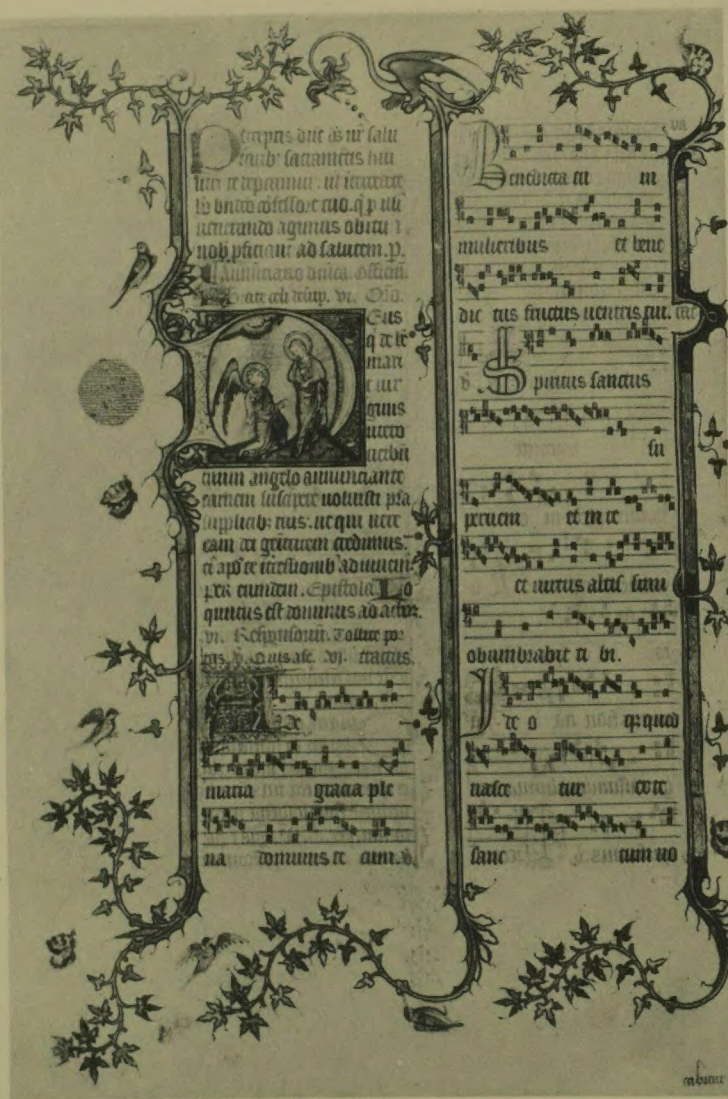 ceptis dne
sacrametis
uenerando agimus obitu
nob pficiant ad salutem. p.
Annunciatio dnica. officiu
Rorate celi desup. vi. Oro.
Eus
q de be
marie
uir
ginis
utero
uerbu
tuum angelo annunciante
carnem suscipere uoluisti pta
supplicib; tuis. ut qui uere
eam dei genitricem credimus.
ei apd te itcessionib; adiuuem.
per eundem. Epistola Lo
quutus est dominus ad achaz.
vi. Responsoriu. Tollite por
tas. v. Quis asc. vj. tractus.
A ue
maria gracia ple
na dominus te cum. v.
Benedicta tu in
mulieribus et bene
dic tus fructus uentris tui.
v. Spiritus sanctus
su
perueni et in te
et uirtus altis simi
obumbrabit ti bi.
I de o q; quod
nasce tur ex te
sanc tum uo
cabitur